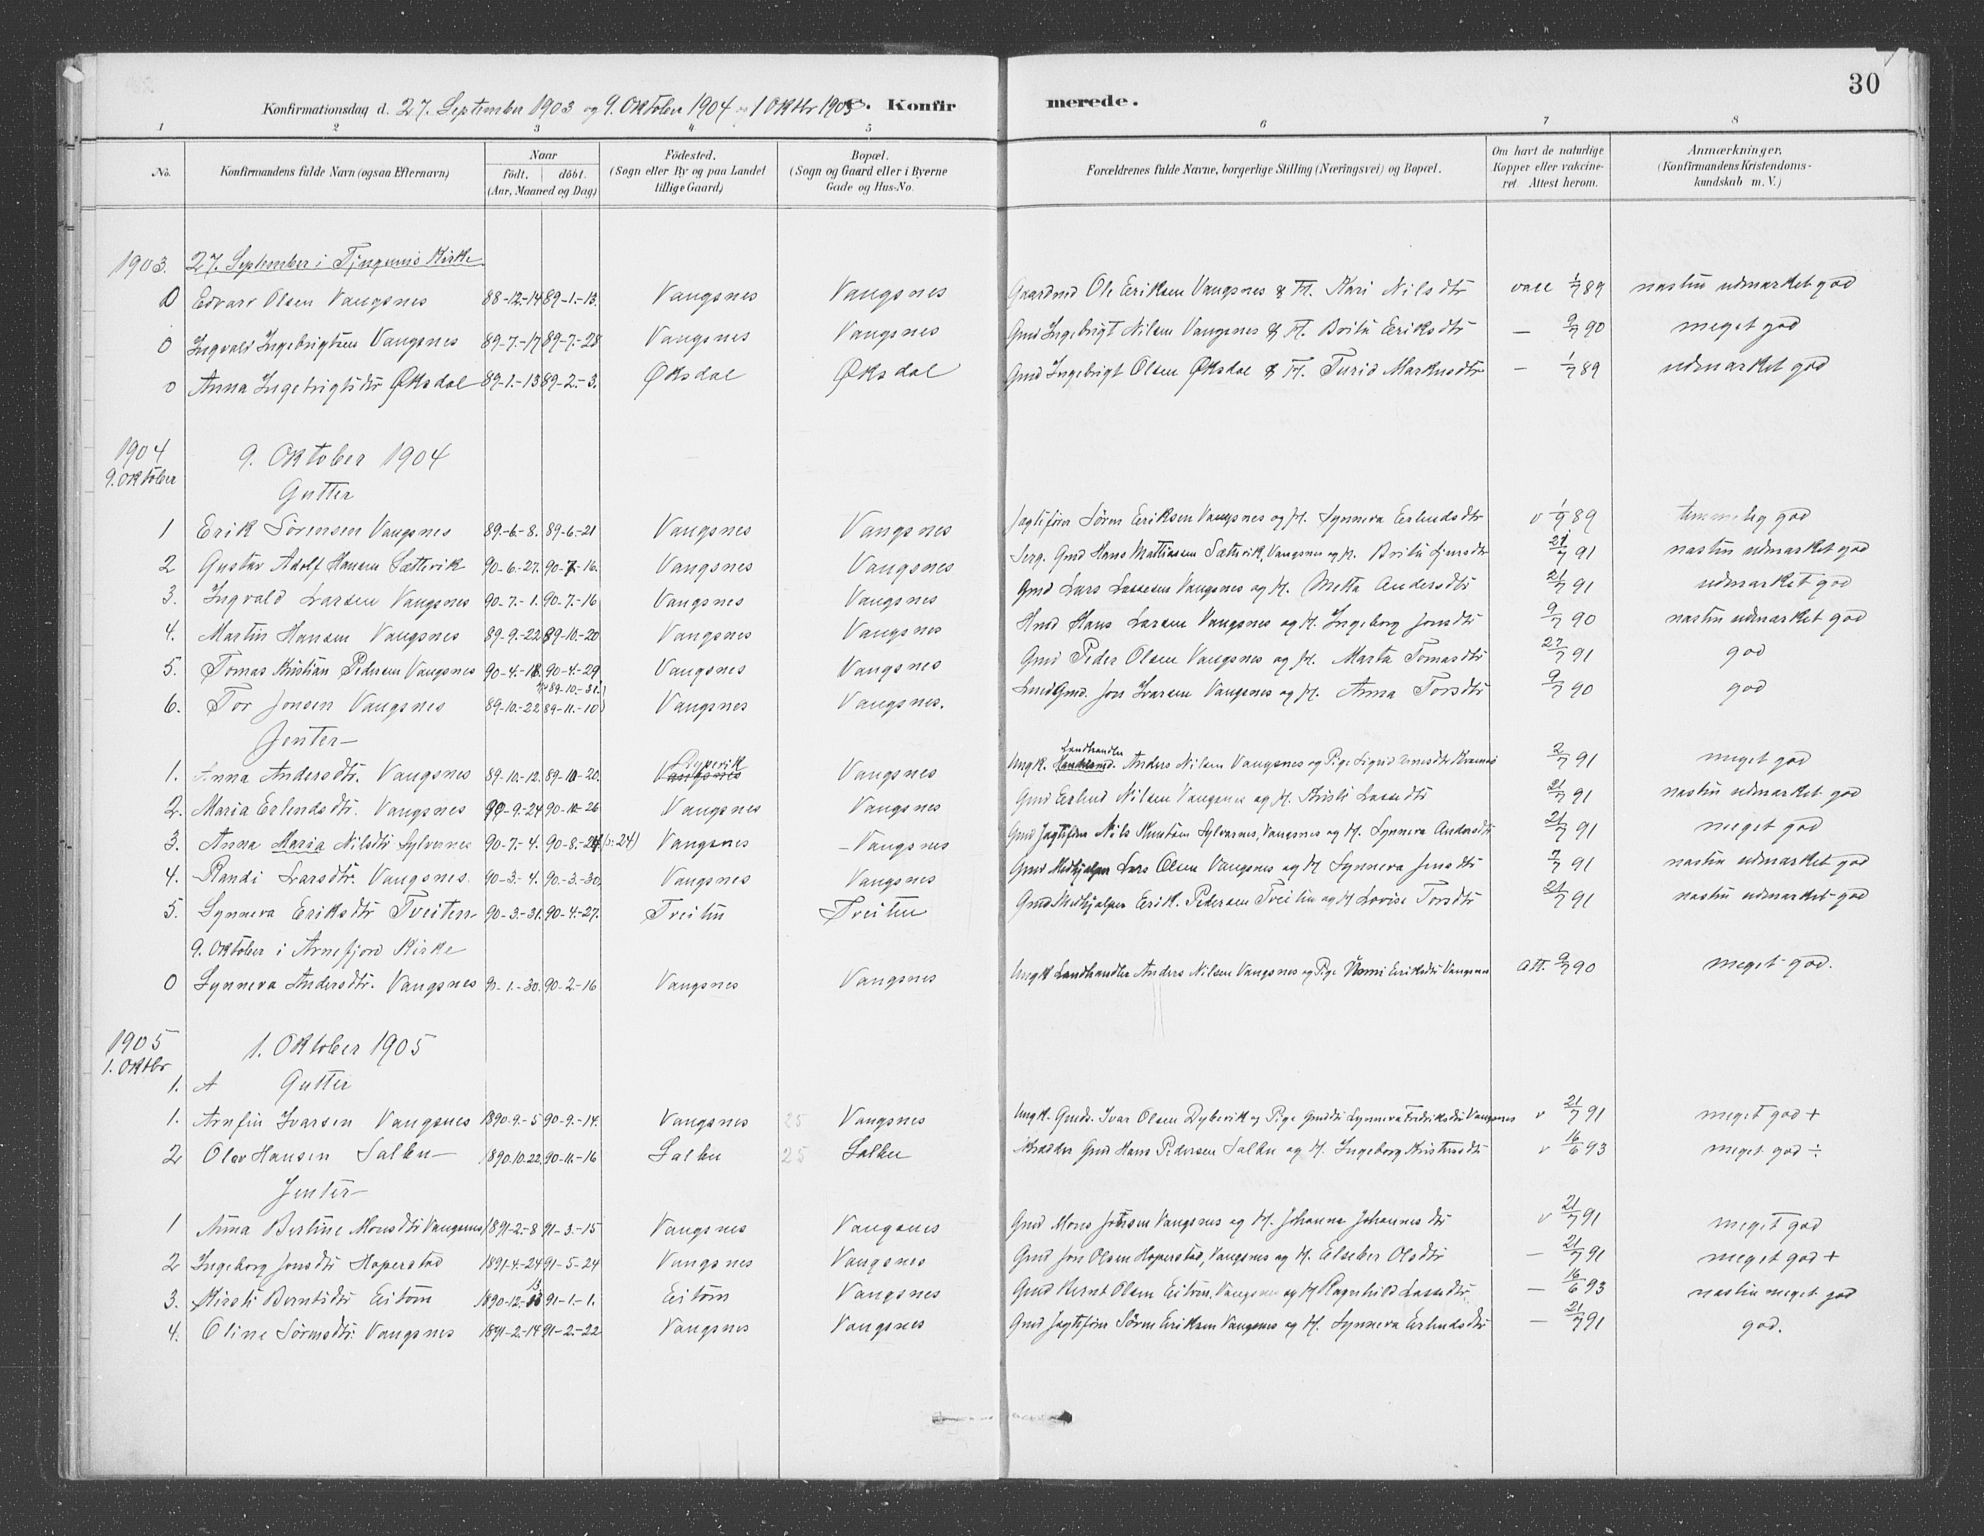 30
Konfirmationsdag d. 27. September 1903 og 9. Oktober 1904 og 1 Oktbr 1905 Konfirmerede.
1 2 3 4 5 6 7 8
No. Konfirmandens fulde Navn (ogsaa Efternavn) Naar født. døbt. (Aar, Maaned og Dag) Fødested. (Sogn eller By og paa Landet tillige Gaard) Bopæl. (Sogn og Gaard eller i Byerne Gade og Hus-No. Forældrenes fulde Navne, borgerlige Stilling (Næringsvei) og Bopæl. Om havt de naturlige Kopper eller vakcineret. Attest herom. Anmærkninger. (Konfirmandens Kristendomskundskab m. V.)
1903. 27. September i Tjugums Kirke
0 Edvard Olsen Vangsnes 88-12-14 89-1-13. Vangsnes Vangsnes Gaardmd Ole Eriksen Vangsnes & H. Kari Nilsdtr vacc 1/7 89 næsten udmærket god
0 Ingvald Ingebrigtsen Vangsnes 89-7-17 89-7-28 Vangsnes Vangsnes Gmd Ingebrigt Nilsen Vangsnes & H. Brita Eriksdtr — 9/7 90 meget god
0 Anna Ingebrigtsdtr Øksdal 89-1-13 89-2-3. Øksdal Øksdal Gmd Ingebrigt Olsen Øksdal & H. Turid Markusdtr — 1/7 89 udmærket god
1904 9. Oktober 9. Oktober 1904
Gutter
1 Erik Sørensen Vangsnes 89-6-8. 89-6-21 Vangsnes Vangsnes Jagtefører Søren Eriksen Vangsnes og H. Synneva Erlendsdtr v 1/9 89 temmelig god
2 Gustav Adolf Hansen Sættevik 90-6-27. 90-7-16. Vangsnes Vangsnes Serg. Gmd Hans Mathiasen Sættevik, Vangsnes og H. Brita 21/7 91 næsten udmærket god
3. Ingvald Larsen Vangsnes 90-7-1. 90-7-16 Vangsnes Vangsnes Gmd Lars Lassesen Vangsnes og H. Metta Andersdtr 21/7 91 udmærket god
4. Martin Hansen Vangsnes 89-9-22 89-10-20 Vangsnes Vangsnes Hmd Hans Larsen Vangsnes og H. Ingeborg Jonsdtr 9/7 90 næsten udmærket god
5. Tomas Kristian Pedersen Vangsnes 90-4-18. 90-4-29 Vangsnes Vangsnes Gmd Peder Olsen Vangsnes og H. Marta Tomasdtr 27/7 91 god
6. Tor Jonsen Vangsnes 89-10-22 89-10-31. 89-11-10 Vangsnes Vangsnes. Gmd. Jon Ivarsen Vangsnes og H. Anna Torsdtr 9/7 90 god
Jenter
1. Anna Andersdtr. Vangsnes 89-10-12. 89-10-20. Vangsnes Dypevik Vangsnes Ungk. Landhandler Anders Nilsen Vangsnes og Pige Sigrid 2/7 91 meget god
2. Maria Erlendsdtr. Vangsnes 90-9-24 90-10-26 Vangsnes Vangsnes Gmd Erlend Nilsen Vangsnes og H. Kristi Lassedtr 21/7 91 næsten udmærket god
3. Anna Maria Nilsdtr Sylvarnes 90-7-4. 90-8-24 (24) Vangsnes Vangsnes Gmd Jagtefører Nils Knutsen Sylvarnes, Vangsnes og H. Synneva Andersdtr 21/7 91 meget god
4. Randi Larsdtr. Vangsnes. 90-3-4. 90-3-30. Vangsnes Vangsnes Gmd Medhjelper Lars Olsen Vangsnes og H Synneva Jensdtr 7/7 91 næsten udmærket god
5. Synneva Eriksdtr Tveiten 90-3-31. 90-4-27. Tveiten Tveiten Gmd Medhjelper Erik Pedersen Tveiten og H Lovise Torsdtr 21/7 91 næsten udmærket god
9. Oktober i Arnefjord Kirke
0 Synneva Andersdtr. Vangsnes 90-1-30. 90-2-16 Vangsnes Vangsnes Ungk Landhandler Anders Nilsen Vangsnes og Pige Eriksdtr Vangsnes att. 9/7 90 meget god.
1905 1. Oktbr 1. Oktober 1905
1. A Gutter
1. Arnfin Ivarsen Vangsnes 1890-9-5 90-9-14. Vangsnes 25 Vangsnes Ungk. Gmds. Ivar Olsen Dybevik og Pige Gmddtr Synneva Fredriksdtr Vangsnes v 21/7 91 meget god +
2 Olav Hansen Salbu 1890.10.22. 90-11-16 Salbu 25 Salbu Gmd Hans Pedersen Salbu og H. Ingeborg Kristensdtr v 16/6 93 meget god ÷
Jenter
1 Anna Bertine Monsdtr Vangsnes 1891-2-8 91-3-15 Vangsnes Vangsnes Gmd Mons Jensen Vangsnes og H. Johanna Johannesdtr v 21/7 91 meget god
2 Ingeborg Jonsdtr Hoperstad 1891-4-24 91-5-24 Vangsnes Vangsnes Gmd Jon Olsen Hoperstad, Vangsnes og H. Elseber Olsdtr — 21/7 91 meget god +
3. Kirsti Berntsdtr Eitorn 1890-12-13 91-1-1. Eitorn Vangsnes Gmd Bernt Olsen Eitorn, Vangsnes og H Ragnhild Lassedtr — 16/6 93 næsten meget god
4. Oline Sørensdtr. Vangsnes 1891-2-14 91-2-22 Vangsnes Vangsnes Gmd Jagtefører Søren Eriksen Vangsnes og H. Synneva Erlendsdtr — 21/7 91 god.